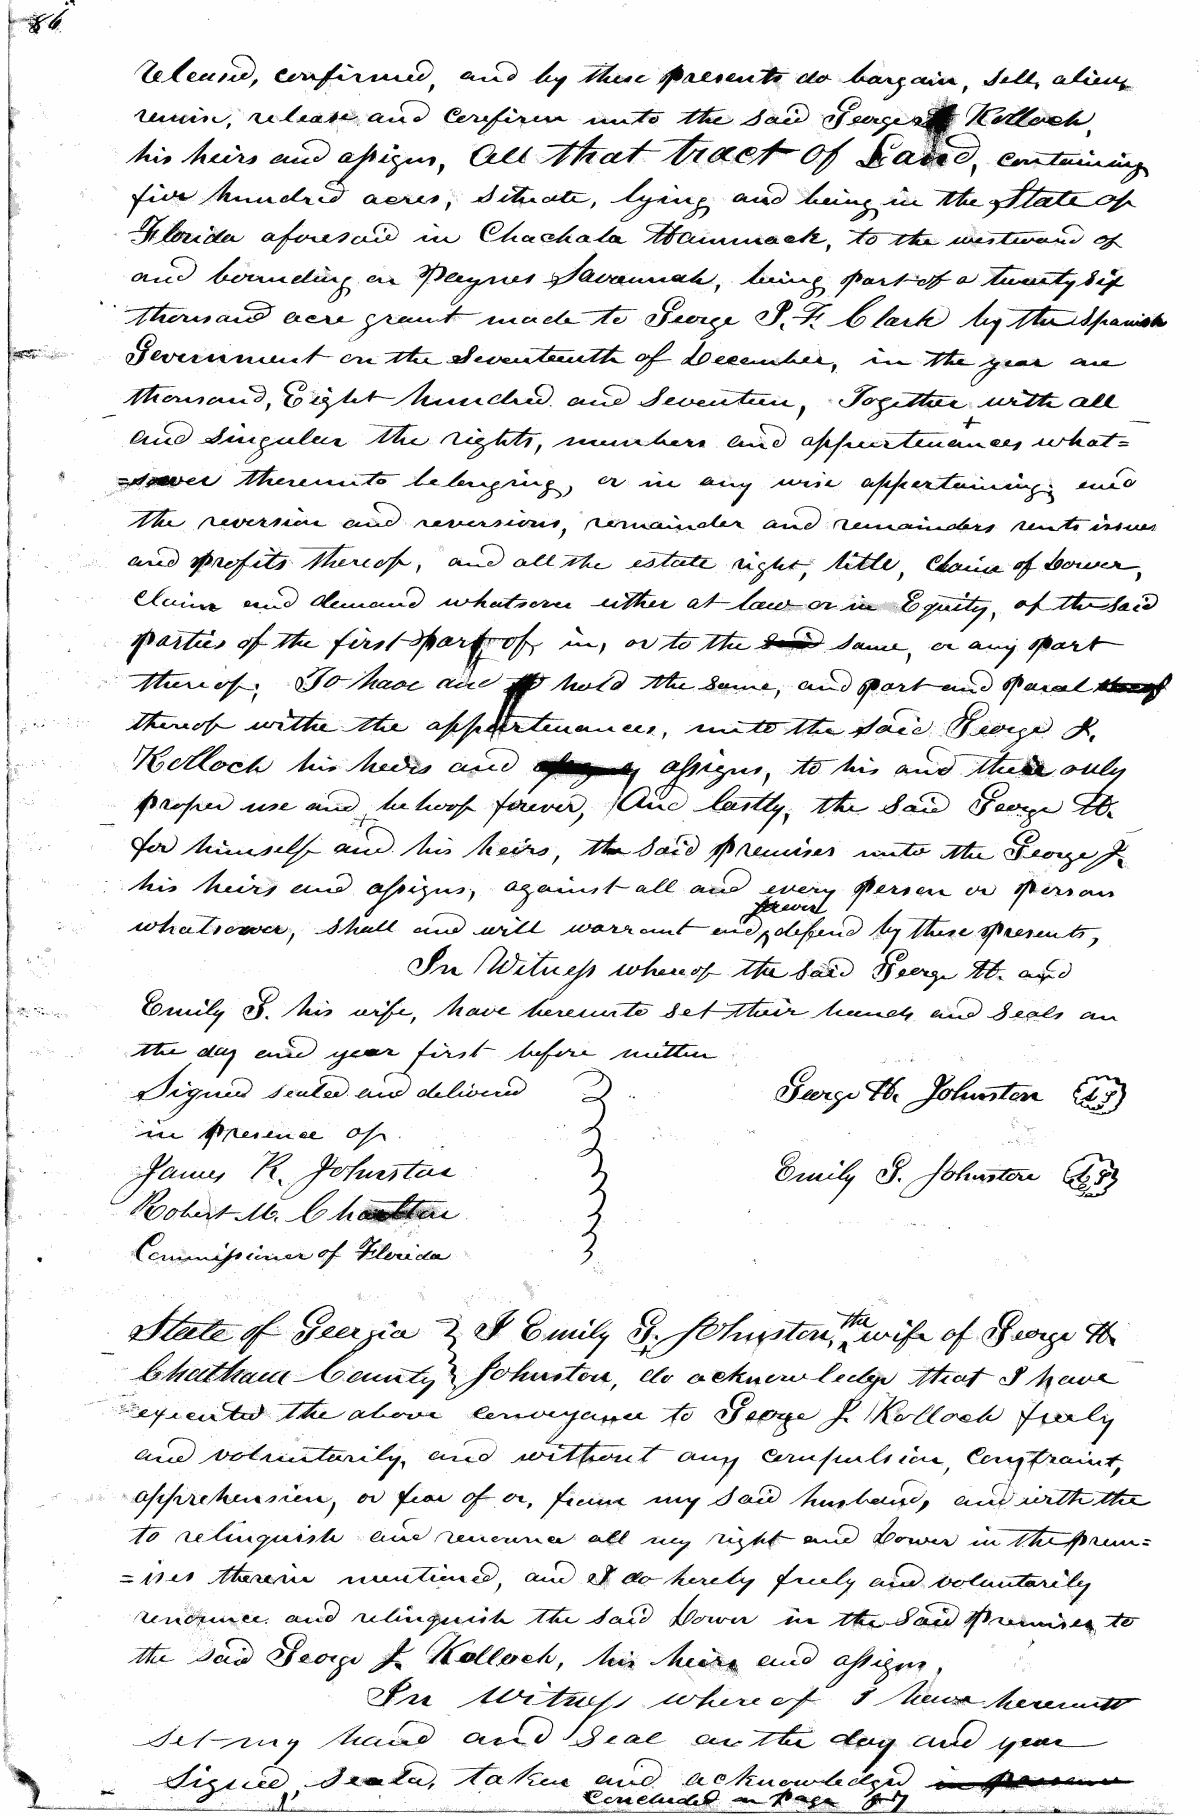 86
released, confirmed, and by these presents do bargain, sell, alien,
remise, release and confirm unto the said George J. Kollock,
his heirs and assigns, All that tract of Land, containing
five hundred acres, situate, lying and being in the State of
Florida aforesaid in Chachala Hammack, to the westward of
and bounding on Paynes Savannah, being part of a twenty six
thousand acre grant made to George I. F. Clark by the Spanish
Government on the Seventeenth of December, in the year one
thousand, Eight hundred and Seventeen, Together with all
and singular the rights, members and appurtenances what=
=soever thereunto belonging, or in any wise appertaining; and
the reversion and reversions, remainder and remainders rents issues
and profits thereof, and all the estate right, title, Claim of Dower,
Claim and demand whatsoever either at law or in Equity, of the said
parties of the first part, of, in, or to the said same, or any part
thereof; To have and to hold the same, and part and parcel thereof
thereof withe the appurtenances, unto the said George J.
Kollock his heirs and assigns, to his and their only
proper use and behoof forever, And lastly, the said George H.
for himself and his heirs, the said premises unto the George J.
his heirs and assigns, against all and every person or persons
whatsoever, shall and will warrant and forever defend by these presents,
In Witness whereof the said George H. and
Emily G. his wife, have hereunto set their hands and seals on
the day and year first before written
Signed sealed and delivered
in presence of
George H. Johnston (LS)
James R. Johnston
Emily G. Johnston (LS)
Robert M. Charlton
Commissioner of Florida
State of Georgia } I Emily G. Johnston, the wife of George H.
Chatham County } Johnston, do acknowledge that I have
executed the above conveyance to George J. Kollock freely
and voluntarily, and without any compulsion, Constraint,
apprehension, or fear of or, from my said husband, and with the
to relinquish and renounce all my right and Dower in the prem=
=ises therein mentioned, and I do hereby freely and voluntarily
renounce and relinquish the said Dower in the said Premises to
the said George J. Kollock, his heirs and assigns.
In Witness whereof I have hereunto
set my hand and Seal on the day and year
Signed, Seald, taken and acknowledged in presence
Concluded on Page